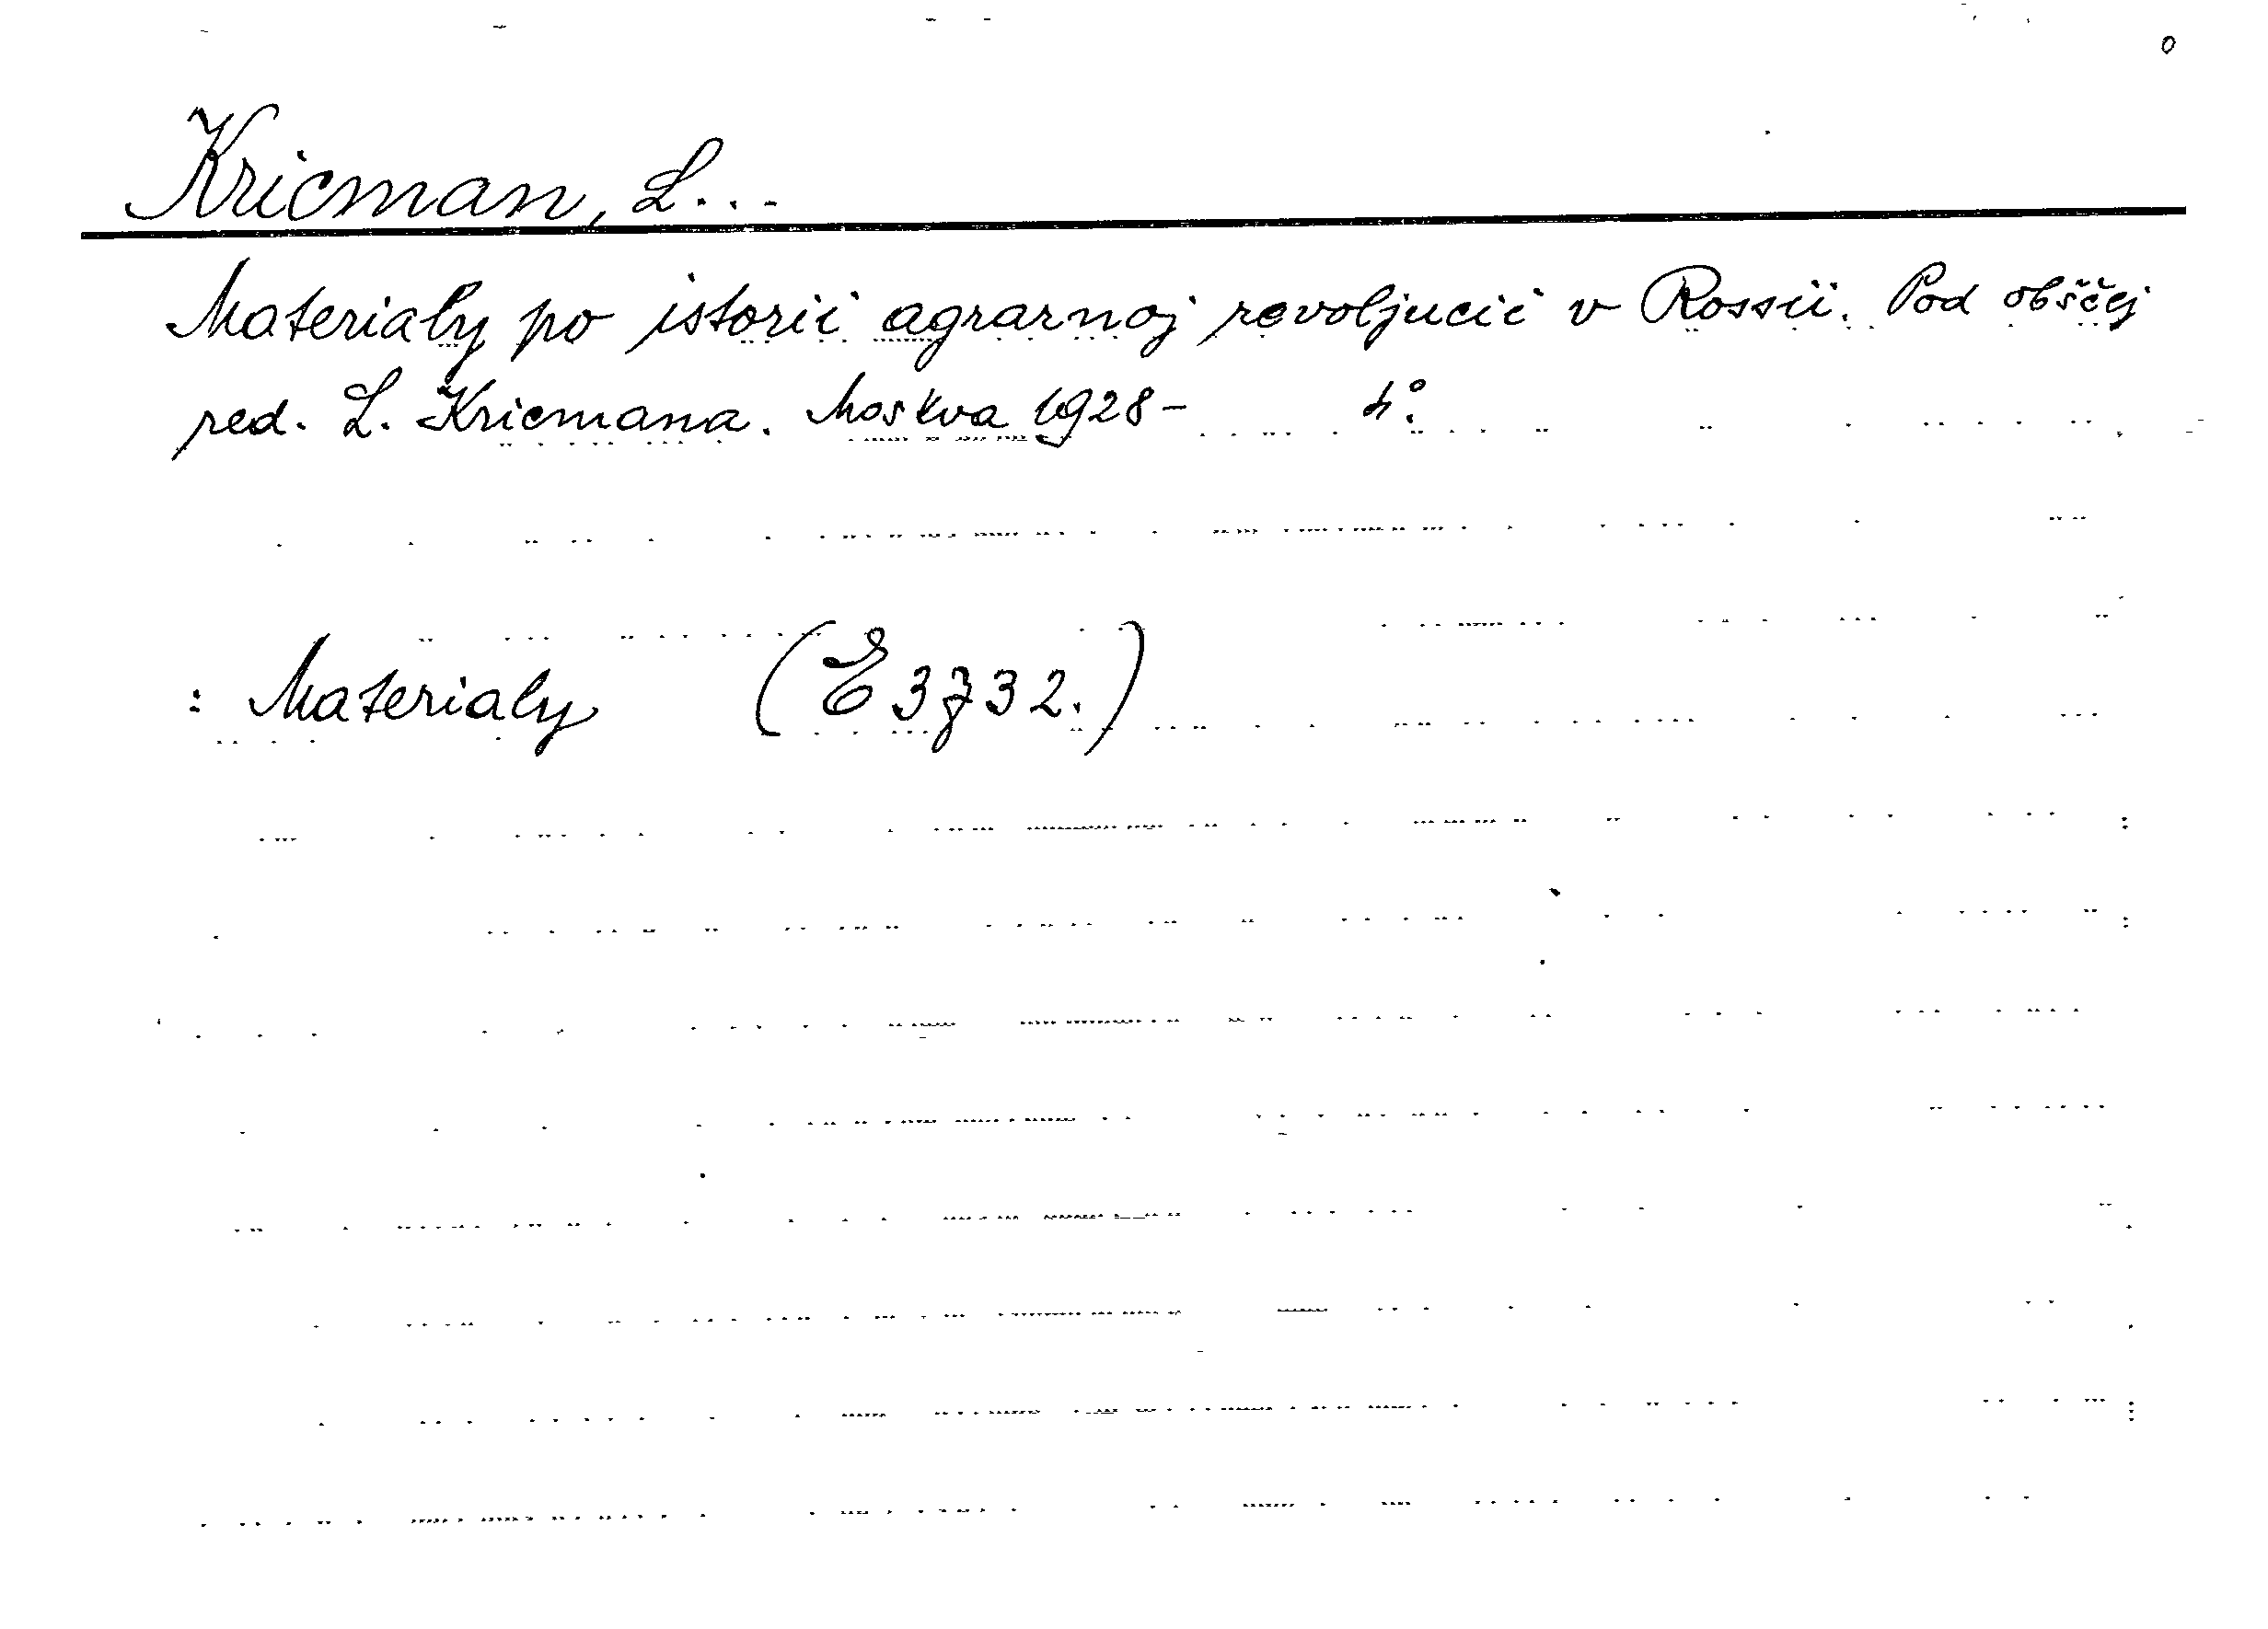 Kricman, L...
Materialy po istorii agrarnoj revoljucii v Rossii. Pod obščej
red. L. Kricmana. Moskva 1928- 4°.
: Materialy (E 3732.)